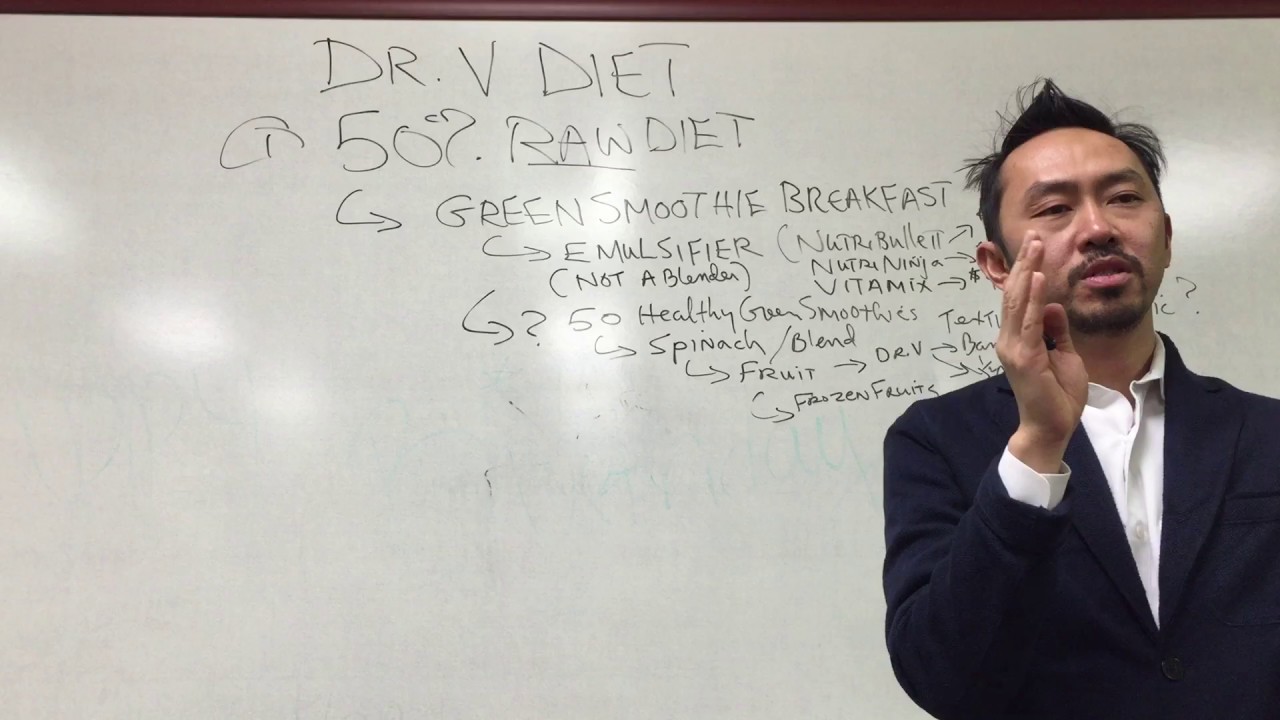 DR. V DIET
① 50% RAW DIET
↳ GREEN SMOOTHIE BREAKFAST
↳ EMULSIFIER (NUTRiBulleTT ↗
(NOT A Blender) NUTRi NiNja →
VITAMIX → $
↳ ? 50 Healthy Green Smoothies
↳ Spinach / Blend
↳ FRUIT → DR.V →
↳ FROZEN FRUITS